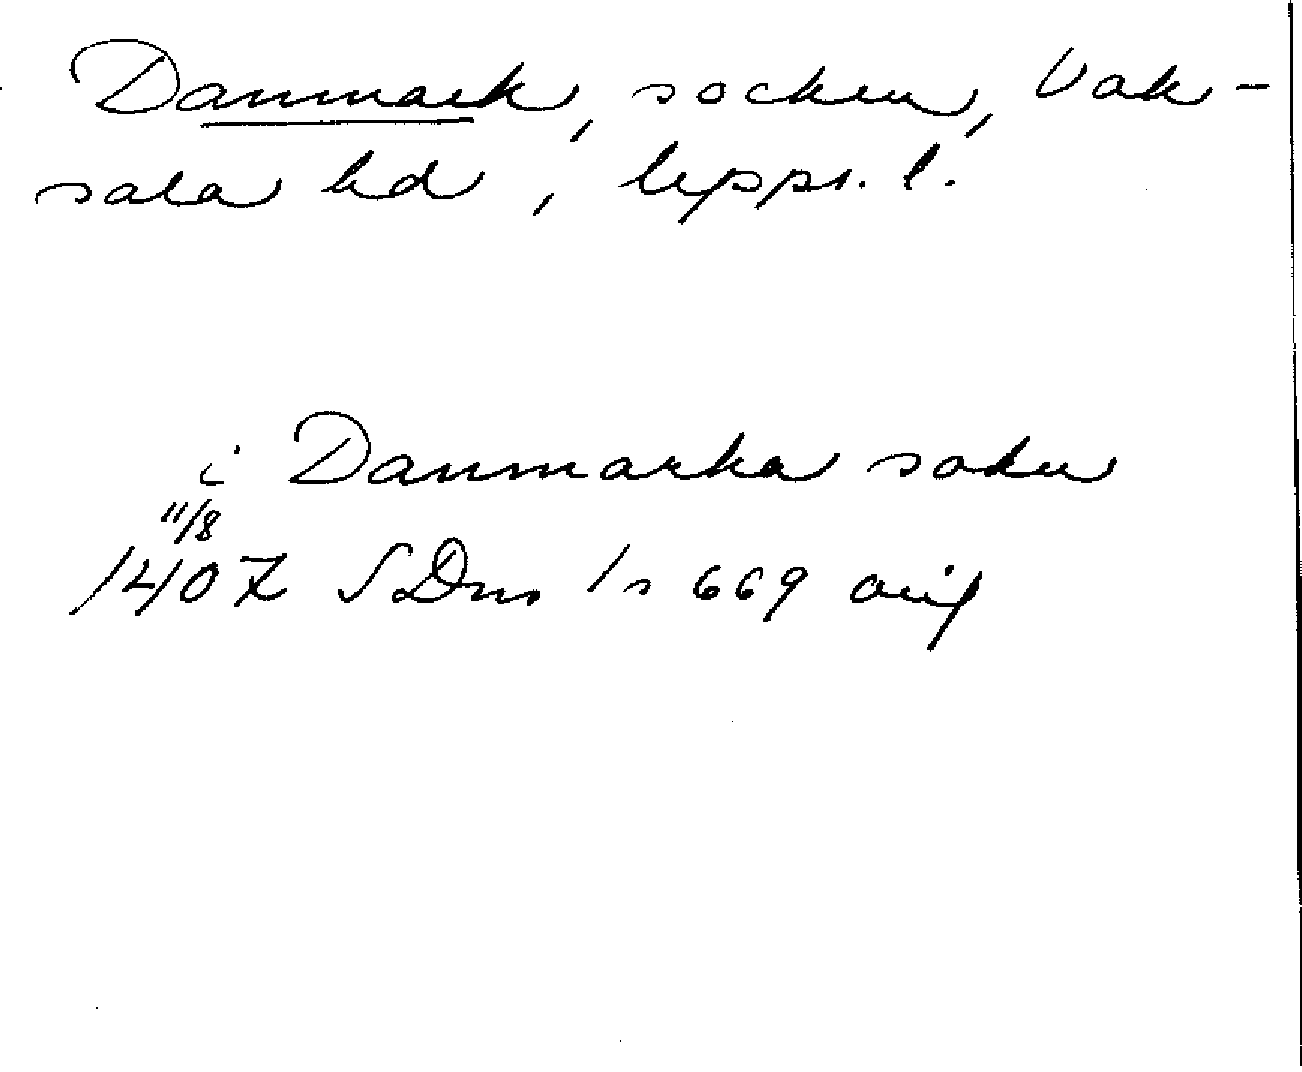 Danmark, socken, Vak-
sala hd, Upps. l.
i Danmarka sokn
11/8
1407 SDns 1 s 669 orig